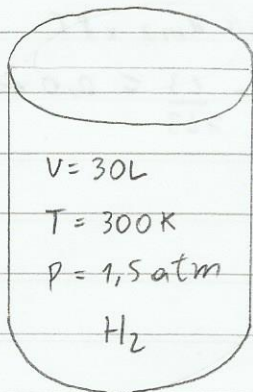 V = 30L
T = 300K
P = 1,5 atm
H₂